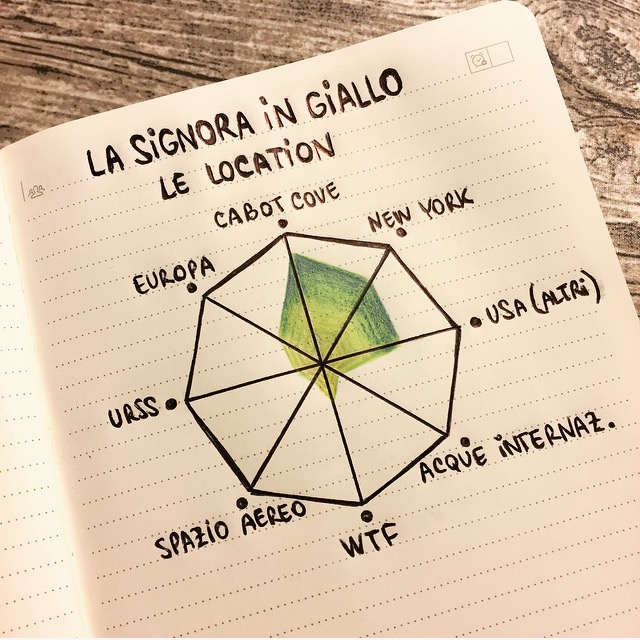 LA SiGNORA iN GiALLO
LE LOCATiON
CABOT COVE
NEW YORK
EUROPA
USA (ALTRi)
URSS
ACQUE iNTERNAZ.
SPAZiO AEREO
WTF